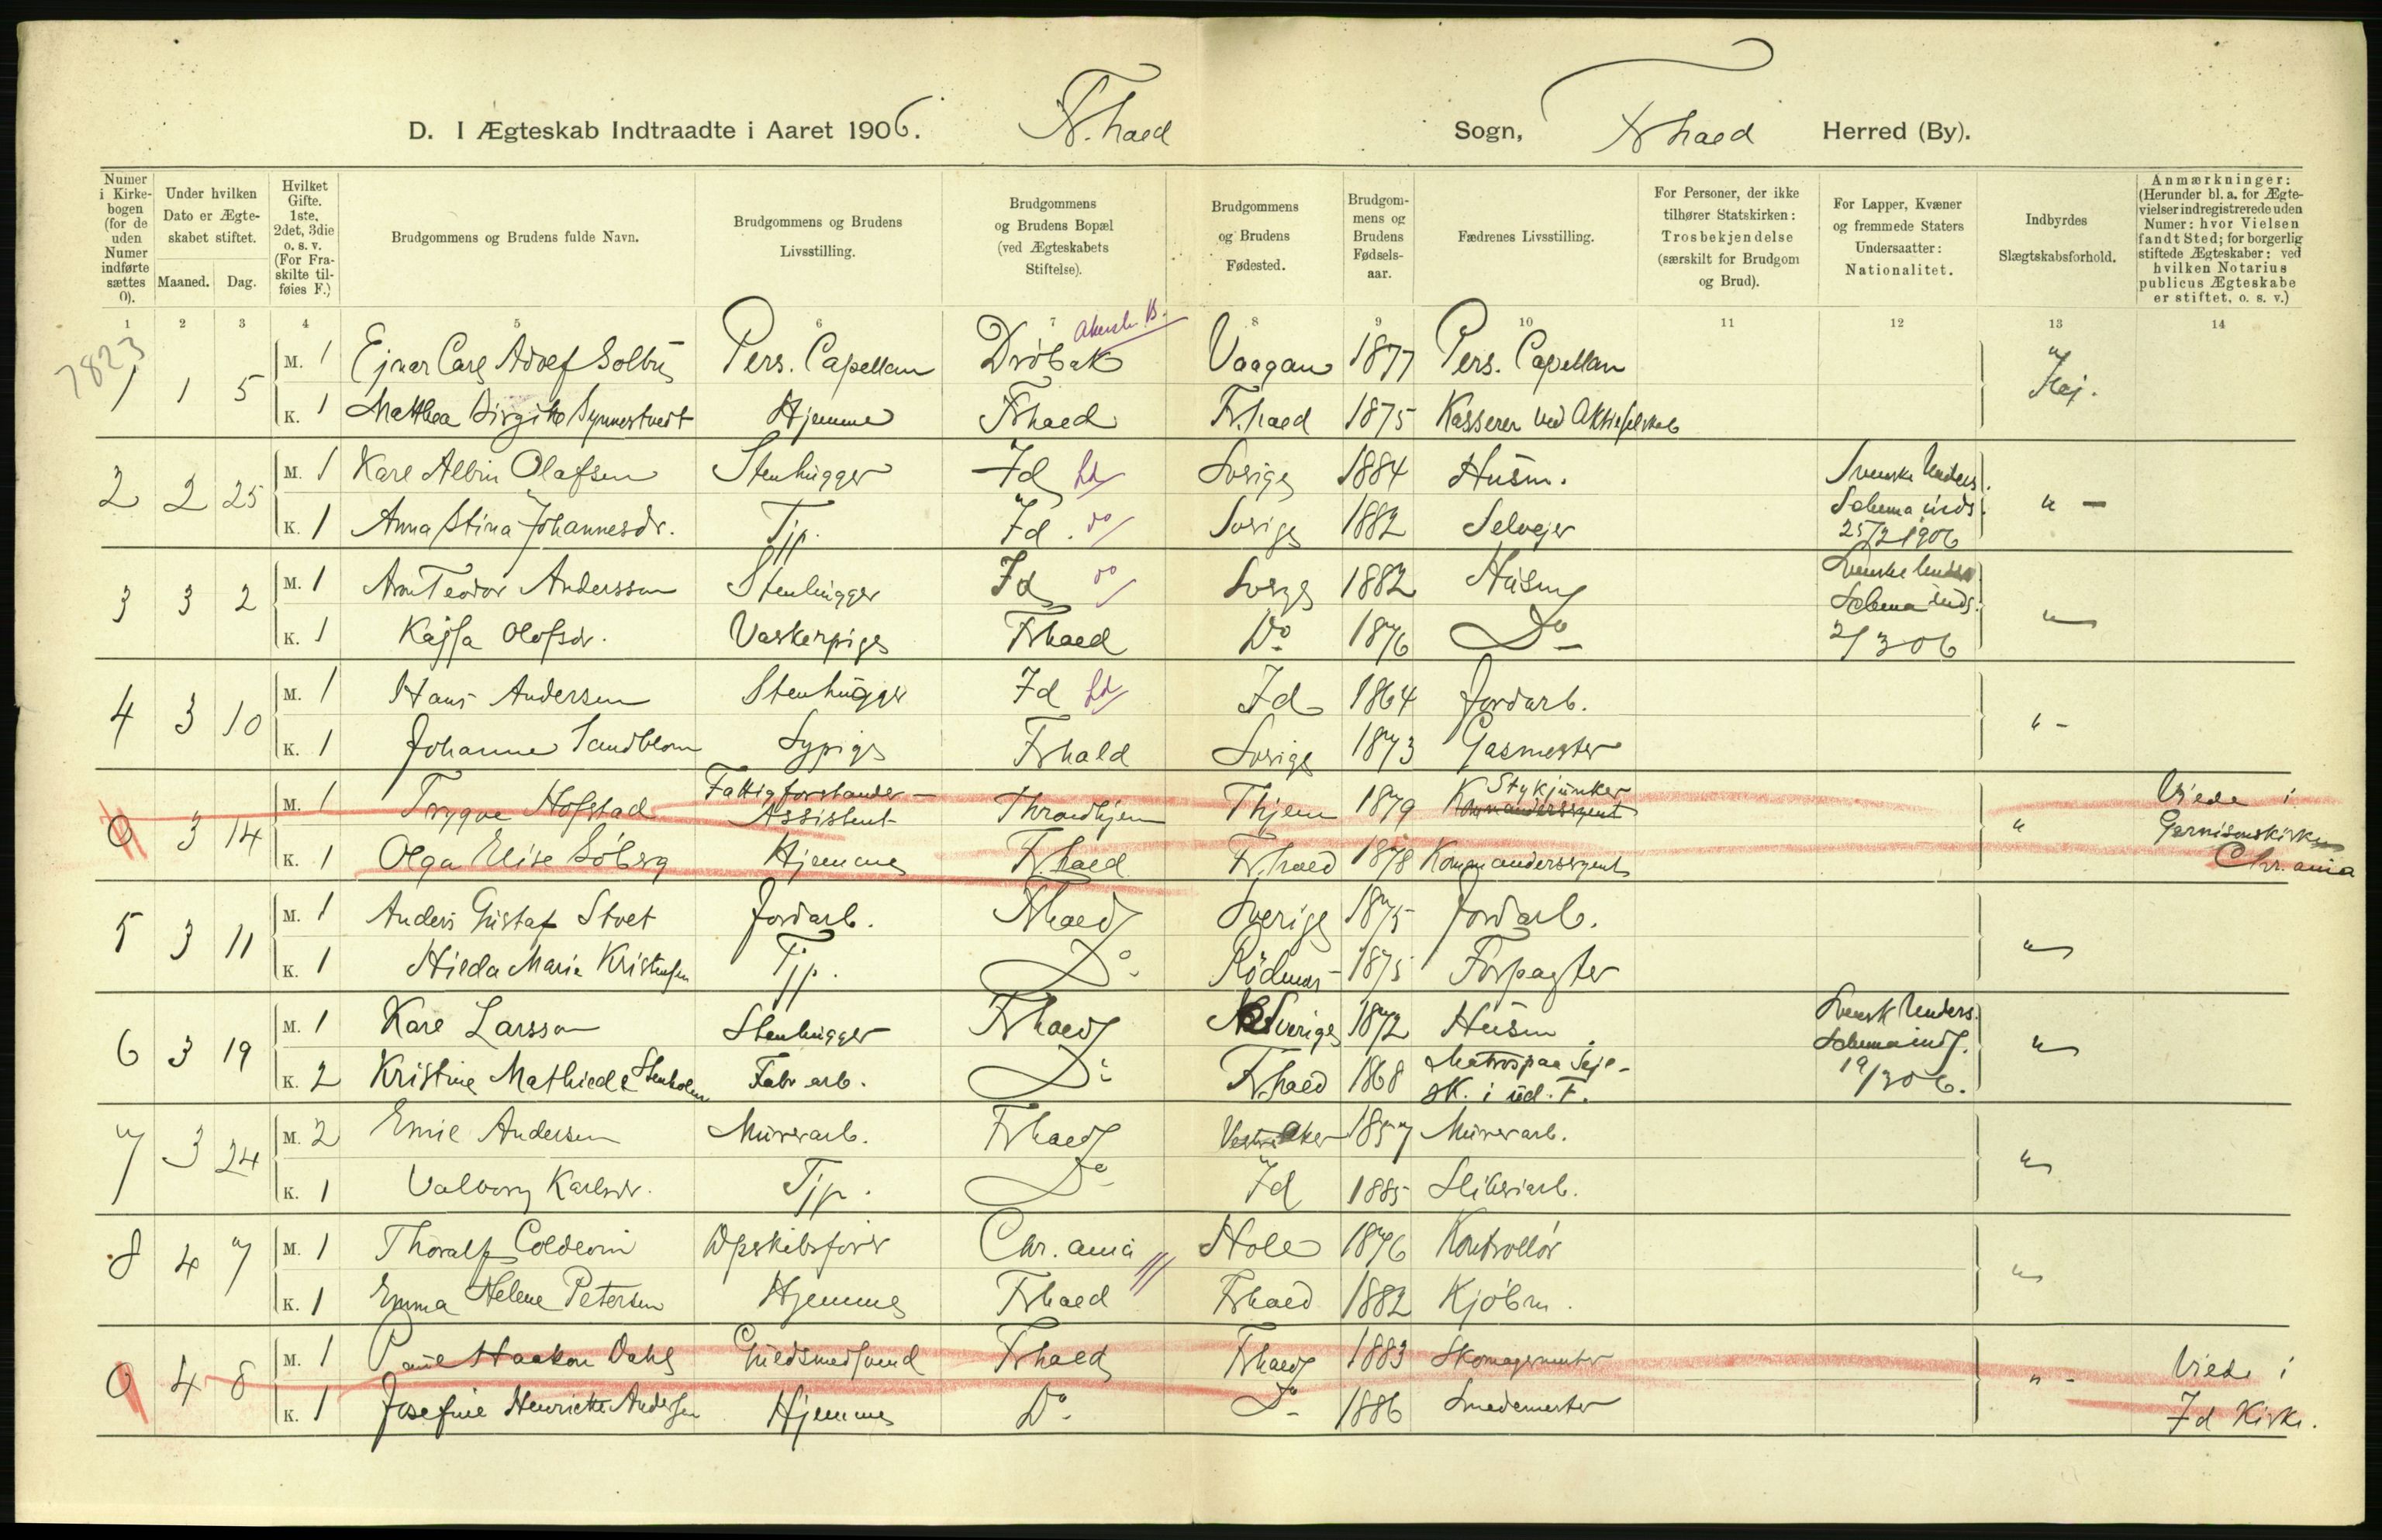 D. I Ægteskab Indtraadte i Aaret 1906. Fr.hald Sogn, Frhald Herred (By).
Numer i Kirkebogen (for de uden Numer indførte sættes 0).
Under hvilken Dato er Ægteskabet stiftet.
Maaned. Dag.
Hvilket Gifte. 1ste, 2det, 3die o. s. v. (For Fraskilte tilføies F.)
Brudgommens og Brudens fulde Navn.
Brudgommens og Brudens Livsstilling.
Brudgommens og Brudens Bopæl (ved Ægteskabets Stiftelse).
Brudgommens og Brudens Fødested.
Brudgommens og Brudens Fødselsaar.
Fædrenes Livsstilling.
For Personer, der ikke tilhører Statskirken: Trosbekjendelse (særskilt for Brudgom og Brud).
For Lapper, Kvæner og fremmede Staters Undersaatter: Nationalitet.
Indbyrdes Slægtskabsforhold.
Anmærkninger: (Herunder bl. a. for Ægtevielser indregistrerede uden Numer: hvor Vielsen fandt Sted; for borgerlig stiftede Ægteskaber: ved hvilken Notarius publicus Ægteskabe er stiftet, o. s. v.)
1 2 3 4 5 6 7 8 9 10 11 12 13 14
7823
1 1 5 M. 1 Ejnar Carl Adolf Solbu Pers. Capellan Drøbak Akersh. B. Vaagan 1877 Pers. Capellan Nej.
K. 1 Matthea Birgitte Synnestvedt Hjemme Frhald Fr.hald 1875 Kasserer ved Aktieselskab
2 2 25 M. 1 Karl Albin Olafsen Stenhugger Id Ld Sverige 1884 Husm. Svenske Unders. "-
K. 1 Anna Stina Johannesdr. Tjp. Id. do Sverige 1882 Selvejer Schema inds. 25/2 1906
3 3 2 M. 1 Teodor Andersson Stenhugger Id do Sverge 1882 Husm Svenske Unders "
K. 1 Kajsa Olofsdr. Vaskerpige Frhald Do 1876 Do Schema inds. 2/3 06
4 3 10 M. 1 Hans Andersen Stenhugger Id Ld Id 1864 Jordarb. "-
K. 1 Johanne Sandblom Sypige Frhald Sverige 1873 Gasmester
0 3 14 M. 1 Trygve Hofstad Fattigforstander-Assistent Throndhjem Thjem 1879 Stykjunker Kommandersergent " Viede i Garnisonskirken Chr.ania
K. 1 Olga Elise Soberg Hjemme Fr.hald Fr.hald 1878 Kommandersergent
5 3 11 M. 1 Anders Gustaf Stvet Jordarb. Frhald Sverige 1875 Jordarb. "
K. 1 Hilda Marie Kristensen Tjp. Do Rödenes 1875 Forpagter
6 3 19 M. 1 Karl Larsson Stenhugger Frhald Sverige 1872 Husm. Svensk Unders. "
K. 2 Kristine Mathilde Stenholm Fabr arb. Do Frhald 1868 Matros paa Sejlsk. i ud. F. Schema inds. 19/3 06.
7 3 24 M. 2 Emil Andersen Murerarb. Frhald Vestre Aker 1857 Murerarb. "
K. 1 Valborg Karlsdr. Tjp. Do Id 1885 Sliberiarb.
8 4 7 M. 1 Thoralf Coldevin Opskibsfører Chr.ania Hole 1876 Kontrollør "
K. 1 Emma Helene Petersen Hjemme Frhald Frhald 1882 Kjøbm.
0 4 8 M. 1 Paul Haakon Dahl Guldsmedsvend Frhald Frhald 1883 Skomagermester "- Viede i
K. 1 Josefine Henriette Andersen Hjemme Do Do 1886 Smedemester Id Kirke.